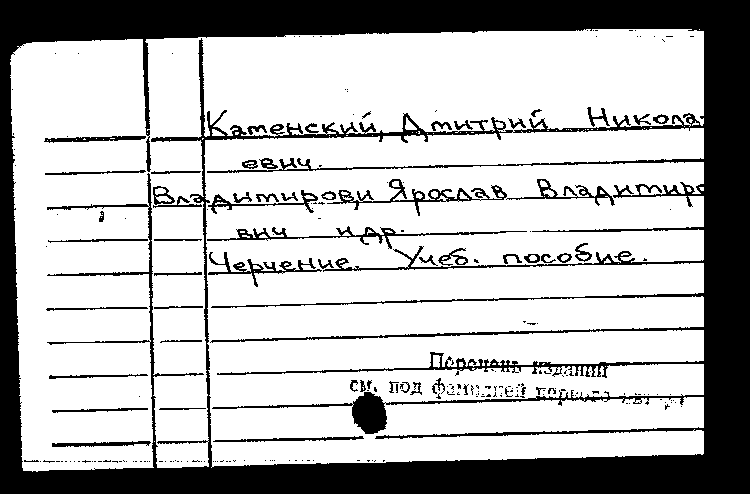 Каменский, Дмитрий Никола-
евич.
Владимирови Ярослав Владимиро
вич и др.
Черчение. Учеб. пособие.
Перечень изданий
см. под фамилией первого автора